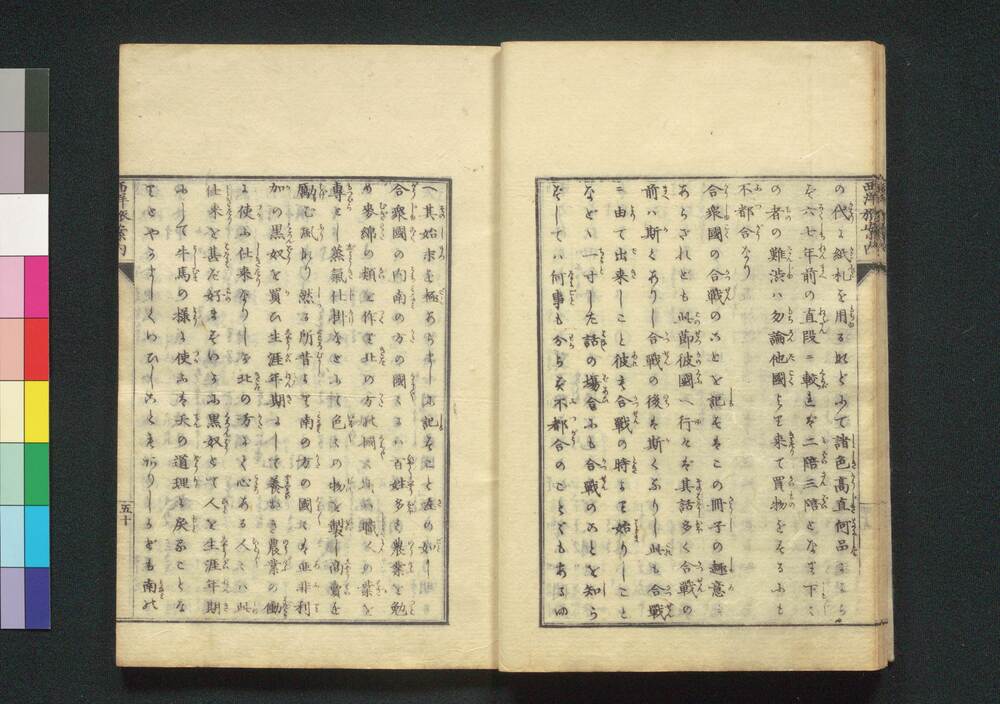 の代に紙札を用る故どふて諸色高直何品によら
ず六七年前の直段に較れば二陪三陪となり下々
の者の難渋ハ勿論他國より来て買物をするふも
不都合なり
合衆國の合戦のことを記すこの冊子の趣意に
あらざれども此節彼國へ行ケば其話多く合戦の
前ハ斯くありし合戦の後ハ斯くなりし此も合戦
ニ由て出来しこと彼も合戦の時より始りしこと
などゝ一寸した話の場合ふも合戦のことを知ら
ずしてハ何事も分らず不都合のことゝもあるゆ
西洋旅案内
へ其始末を極あらましふ記すこと左の如し
合衆國の内南の方の國々ハ百姓多く農業を勉
め麥綿の類を作り北の方の國ハ職人の業を
専とし蒸氣仕掛などふて色々の物を製し商賣を
勵む風なり然る所昔より南の方の國にてハ亜非利
加の黒奴を買ひ生涯年期にして養おき農業の働
に使ふ仕来なりしを北の方よく心ある人々ハ此
仕来を甚だ好まずいかふ黒奴とて人を生涯年期
ふして牛馬の様に使ふハ天の道理に戻ることな
りとやかましくいひしことも有りしかども南の
西洋旅案内
五十